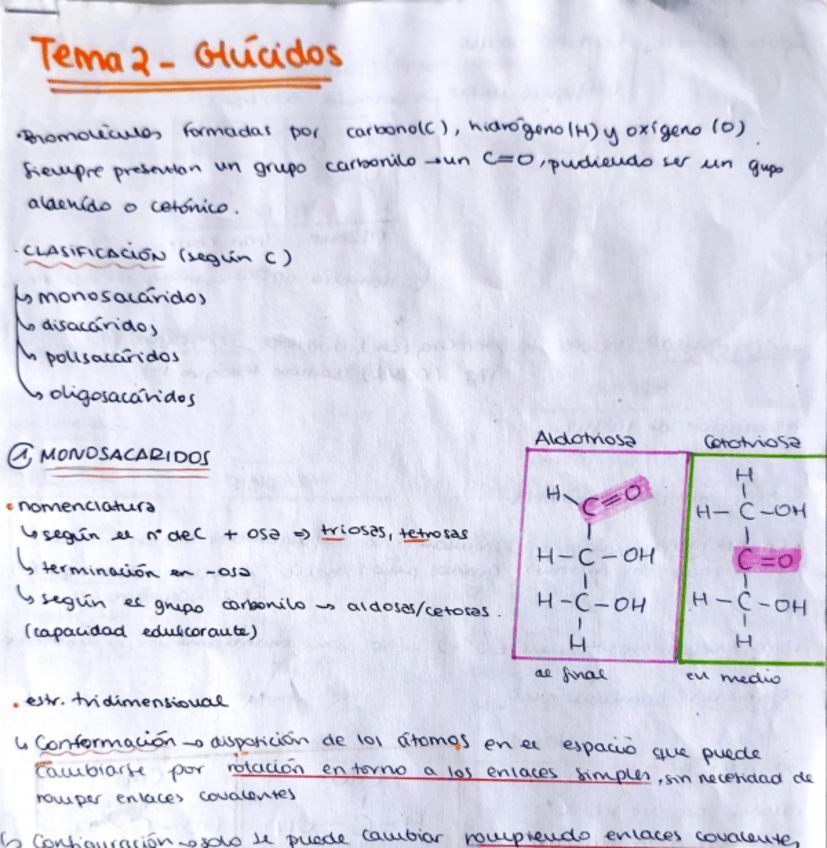 Tema 2 - Glúcidos
·Biomoléculas formadas por carbono(C), hidrógeno (H) y oxígeno (O).
Siempre presentan un grupo carbonilo → un C=O, pudiendo ser un gupo
aldehído o cetónico.
·CLASIFICACIÓN (según C)
↳ monosacáridos
↳ disacáridos
↳ polisacáridos
↳ oligosacáridos
① MONOSACARIDOS
• nomenclatura
↳ según el nº de C + osa ⇒ triosas, tetrosas
↳ terminación en -osa
↳ según el grupo carbonilo → aldosas/cetosas.
(capacidad edulcorante)
Aldotriosa
H C=O
H-C-OH
H-C-OH
H
al final
Cetotriosa
H
H-C-OH
C=O
H-C-OH
H
en medio
• estr. tridimensional
↳ Conformación → disposición de los átomos en el espacio que puede
cambiarse por rotación en torno a los enlaces simples, sin necesidad de
romper enlaces covalentes
↳ Configuración → solo se puede cambiar rompiendo enlaces covalentes,